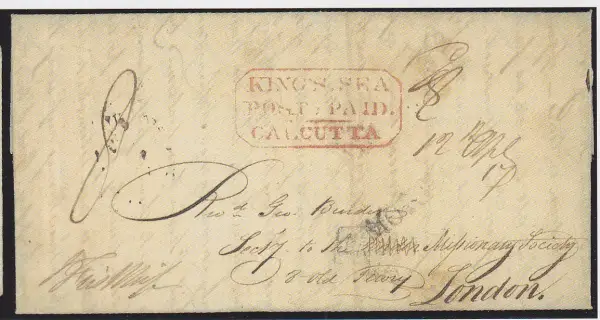 KING'S SEA
POST PAID.
CALCUTTA
12th Apl
17
Revd. Geo. Burder
Secry to the Missionary Society
8 old Jewry
London.